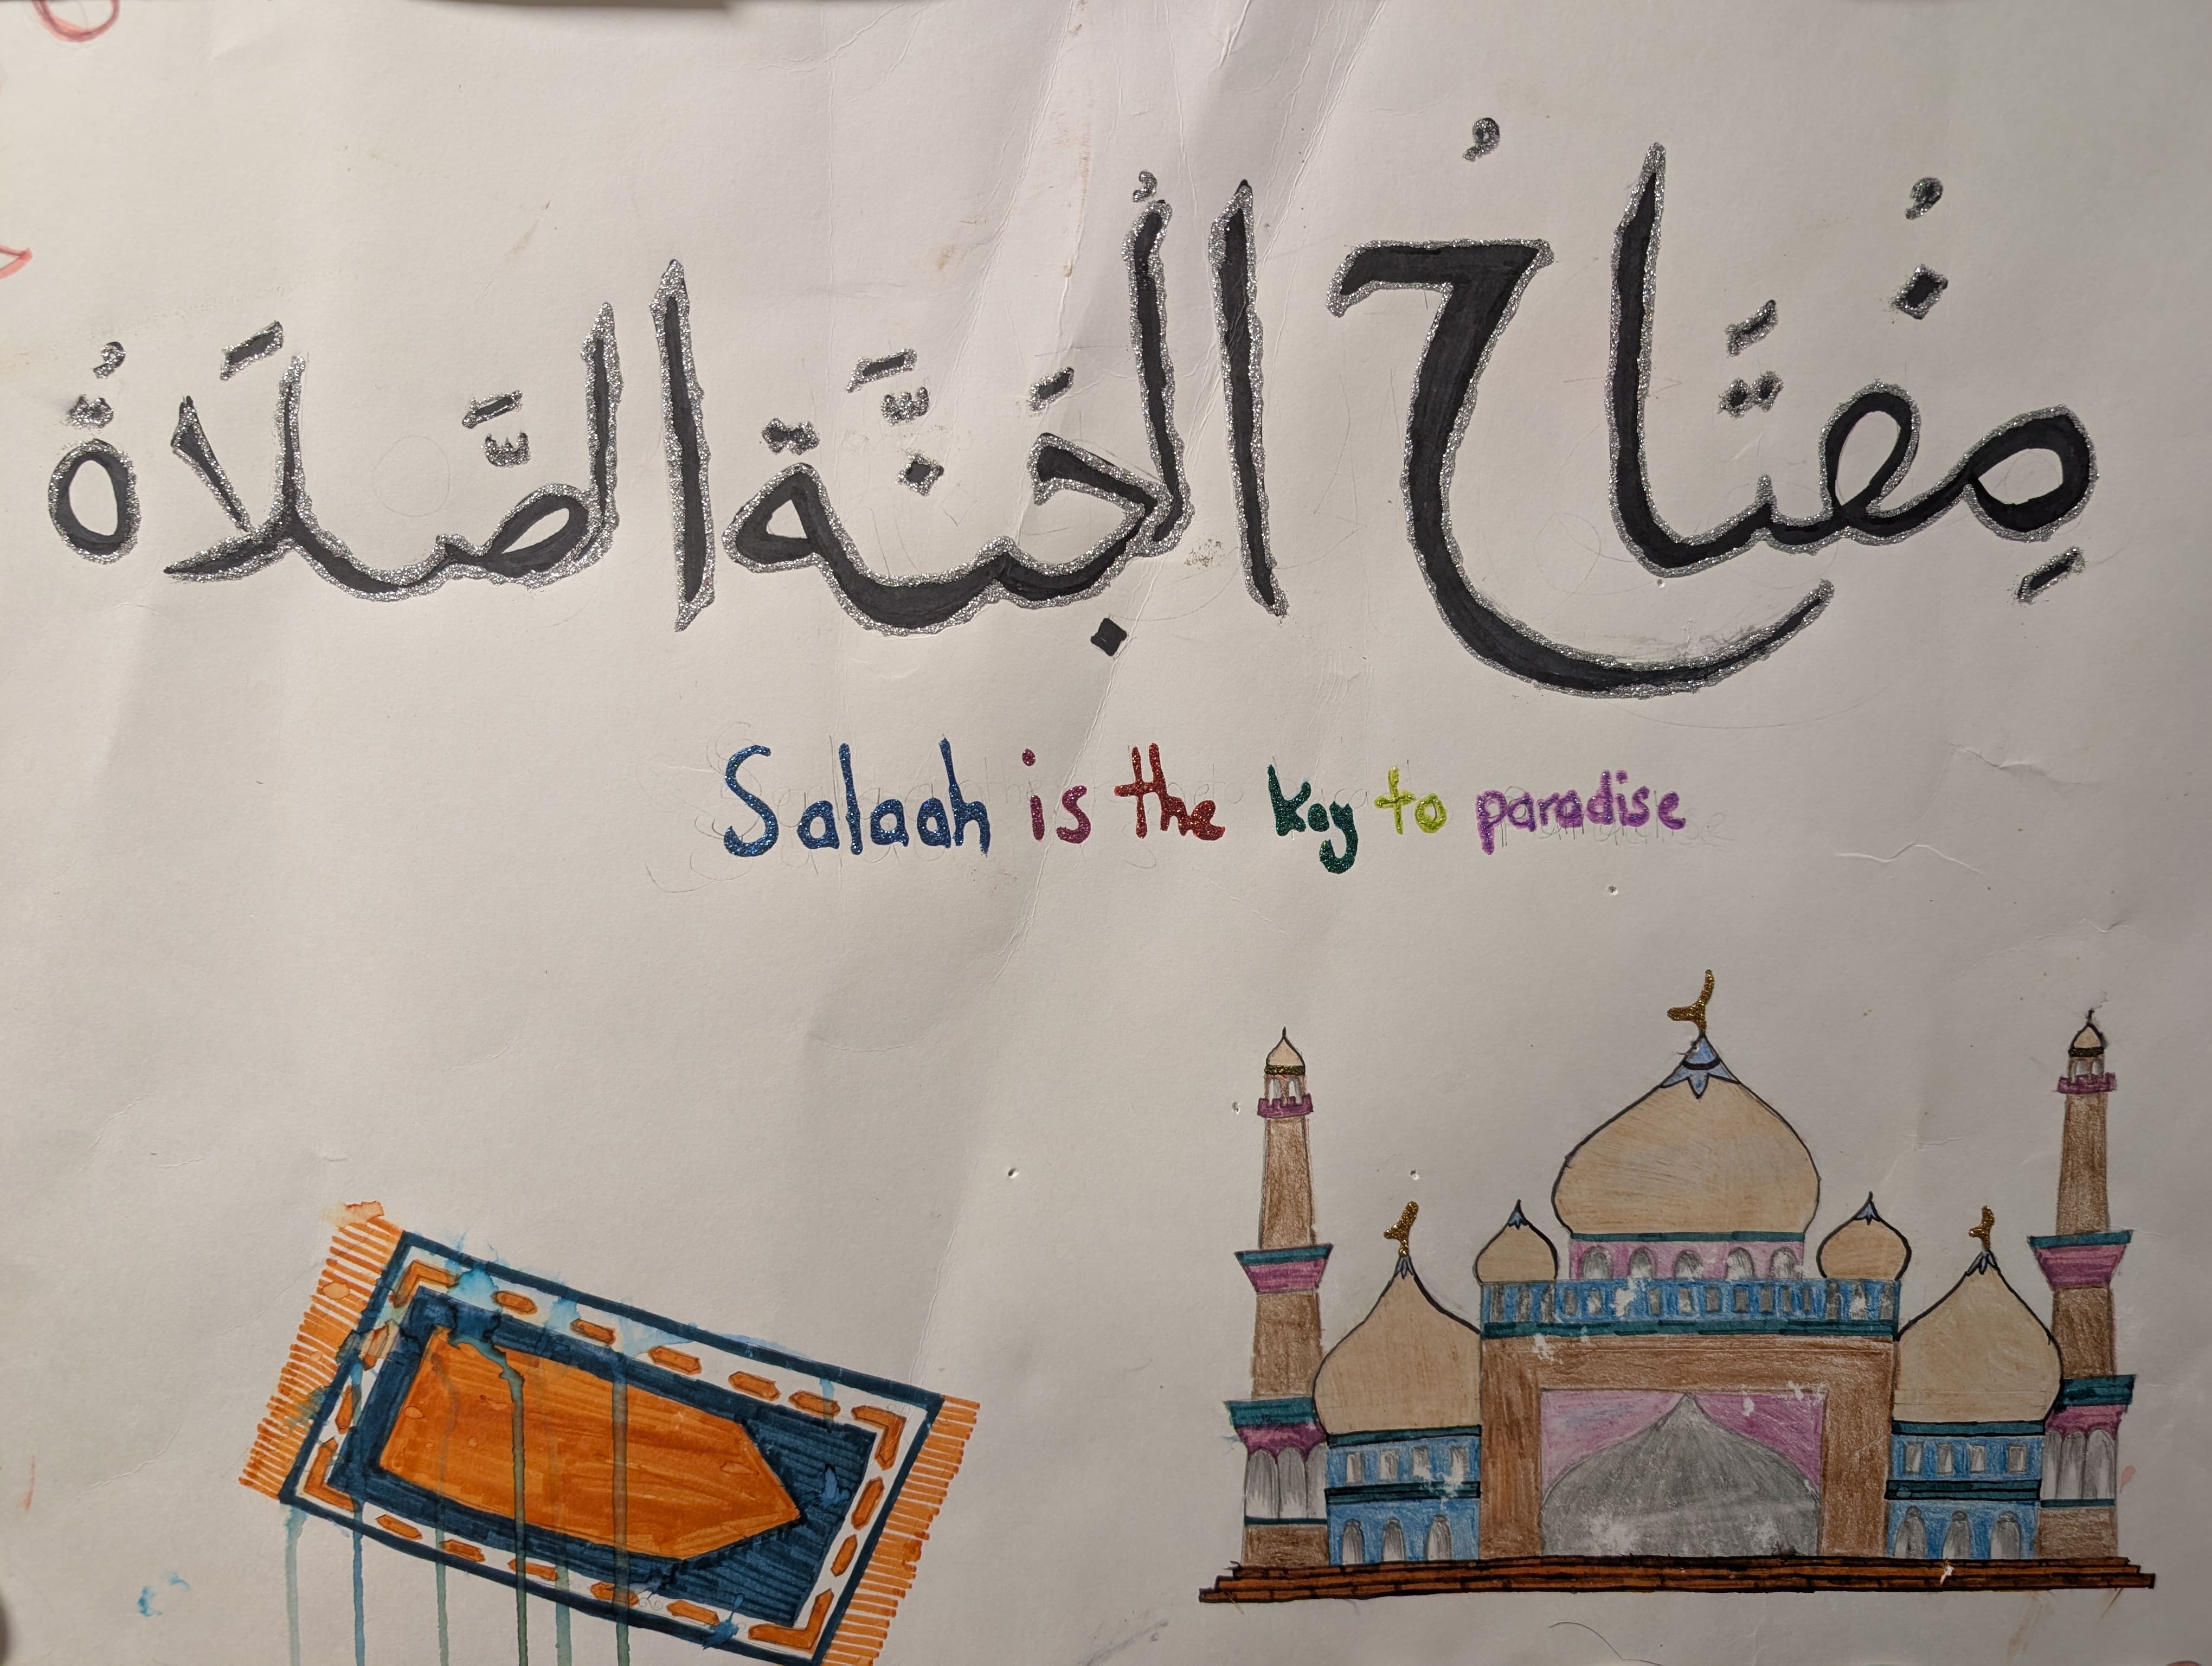 مِفُتَّاحُ الُجَنَّة الصَّلَاةُ
Salaah is the key to paradise